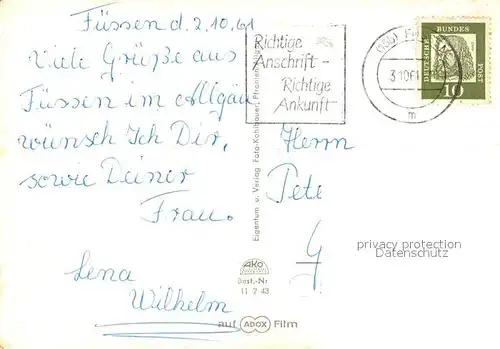 Füssen d. 2.10.61
Viele Grüße aus
Füssen im Allgäu
wünsch Ich Dir,
sowie Deiner
Frau.
Lena
Wilhelm
Eigentum u. Verlag Foto-Kohlbauer, Pfronten
AKO
Best.-Nr
11 7 43
auf ADOX Film
Richtige
Anschrift –
Richtige
Ankunft
3.10.61
m
DEUTSCHE BUNDESPOST
10
Herrn
Pete
G
privacy protection
Datenschutz